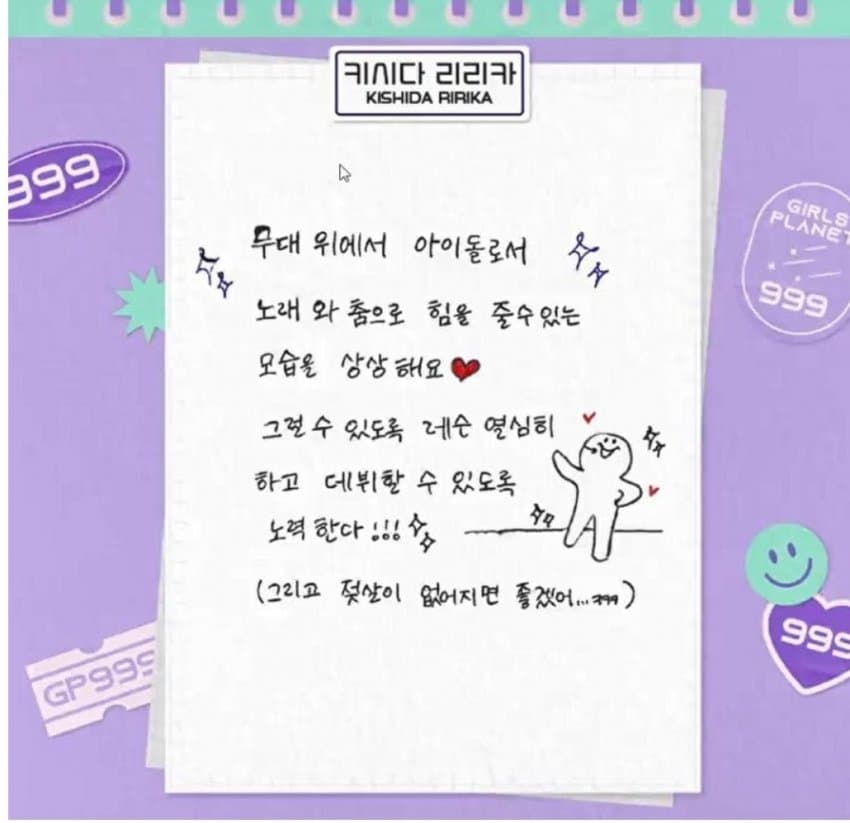 키시다 리리카
KISHIDA RIRIKA
999
GIRLS
PLANET
999
무대 위에서 아이돌로서
노래와 춤으로 힘을 줄수있는
모습을 상상해요
그럴 수 있도록 레슨 열심히
하고 데뷔할 수 있도록
노력한다!!!
(그리고 젖살이 없어지면 좋겠어...ㅋㅋㅋ)
GP999
999